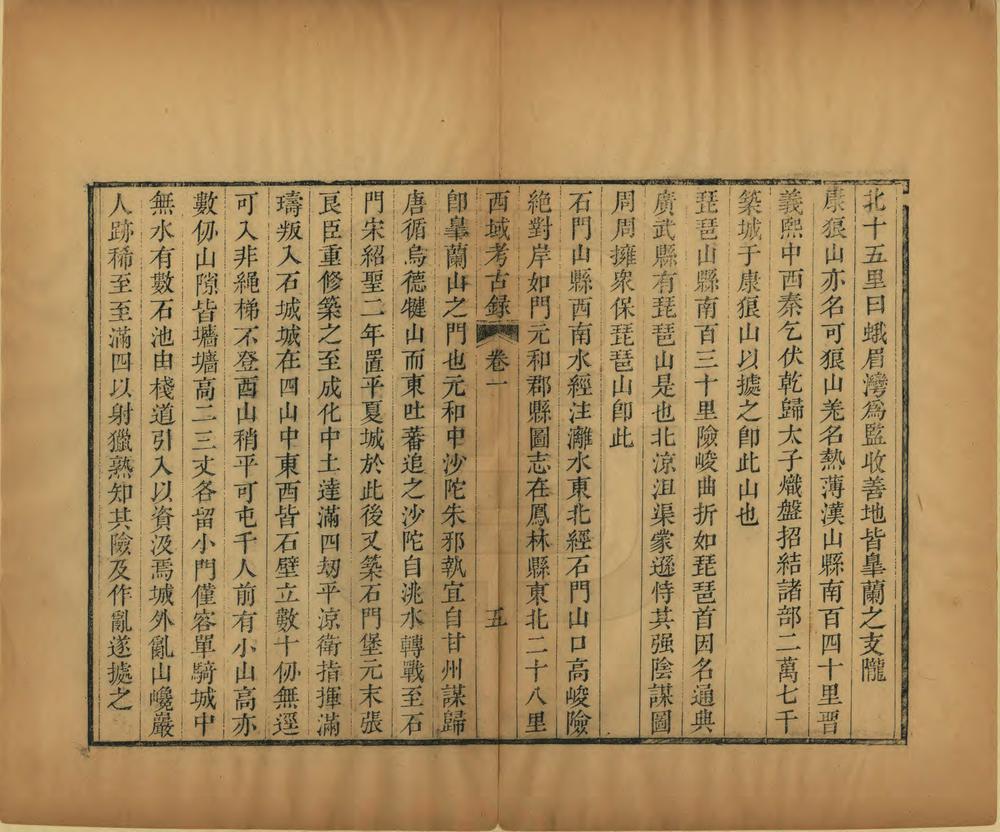 北十五里曰蛾眉灣爲監收善地皆臯蘭之支隴
康狼山亦名可狼山羌名熱薄漢山縣南百四十里晋
義熙中西秦乞伏乾歸太子熾盤招結諸部二萬七千
築城于康狼山以㨿之卽此山也
琵琶山縣南百三十里險峻曲折如琵琶首因名通典
廣武縣有琵琶山是也北涼沮渠蒙遜恃其强陰謀圖
周周擁衆保琵琶山卽此
石門山縣西南水經注灕水東北經石門山口高峻險
絶對岸如門元和郡縣圖志在鳳林縣東北二十八里
西域考古録 卷一 五
卽臯蘭山之門也元和中沙陀朱邪執宜自甘州謀歸
唐循烏德犍山而東吐蕃追之沙陀自洮水轉戰至石
門宋紹聖二年置平夏城於此後又築石門堡元末張
良臣重修築之至成化中土達滿四刼平涼衛指揮滿
璹叛入石城城在四山中東西皆石壁立數十仞無逕
可入非繩梯不登酉山稍平可屯千人前有小山高亦
數仞山隙皆墻墻高二三丈各留小門僅容單騎城中
無水有數石池由棧道引入以資汲焉城外亂山巉巖
人跡稀至至滿四以射獵熟知其險及作亂遂㨿之